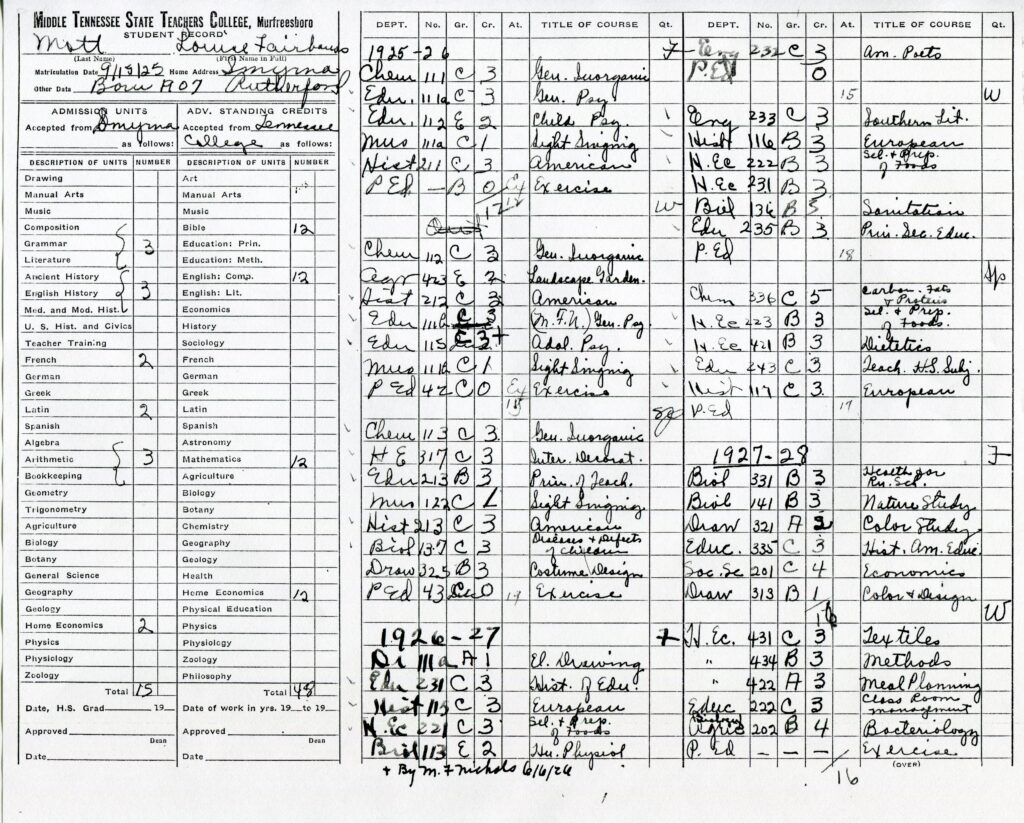 MIDDLE TENNESSEE STATE TEACHERS COLLEGE, Murfreesboro
STUDENT RECORD
Mott Louise Fairbanks
(Last Name) (First Name in Full)
Matriculation Date 9/18/25 Home Address Smyrna
Other Date Born 1907 Rutherford
ADMISSION UNITS ADV. STANDING CREDITS
Accepted from Smyrna Accepted from Tennessee
as follows: College as follows:
DESCRIPTION OF UNITS NUMBER DESCRIPTION OF UNITS NUMBER
Drawing Art
Manual Arts Manual Arts
Music Music
Composition Bible 12
Grammar 3 Education: Prin.
Literature Education: Meth.
Ancient History English: Comp. 12
English History 3 English: Lit.
Med. and Mod. Hist. Economics
U. S. Hist. and Civics History
Teacher Training Sociology
French 2 French
German German
Greek Greek
Latin 2 Latin
Spanish Spanish
Algebra Astronomy
Arithmetic 3 Mathematics 12
Bookkeeping Agriculture
Geometry Biology
Trigonometry Botany
Agriculture Chemistry
Biology Geography
Botany Geology
General Science Health
Geography Home Economics 12
Geology Physical Education
Home Economics 2 Physics
Physics Physiology
Physiology Zoology
Zoology Philosophy
Total 15 Total 48
Date, H.S. Grad 19 Date of work in yrs. 19 to 19
Approved Approved
Dean Dean
Date Date
DEPT. No. Gr. Cr. At. TITLE OF COURSE Qt.
1925-26 F
Chem 111 C 3 Gen. Inorganic
Edu. 111a C 3 Gen. Psy.
Edu. 112 E 2 Child Psy.
Mus 111a C 1 Sight Singing
Hist 211 C 3 American
P Ed - B 0 Ex Exercise
12 W
Chem 112 C 3 Gen. Inorganic
Agr 423 E 2 Landscape Garden.
Hist 212 C 3 American
Edu 111b C 3 (M.F.N.) Gen. Psy
Edu 115 C 3+ Adol. Psy.
Mus 111b C 1 Sight Singing
P Ed 42 C 0 Ex Exercise
15 Sp
Chem 113 C 3 Gen. Inorganic
H E 317 C 3 Inter. Decorat.
Edu 213 B 3 Prin. of Teach.
Mus 122 C 1 Sight Singing
Hist 213 C 3 American
Biol 137 C 3 Diseases & Defects of Children
Draw 325 B 3 Costume Design
P Ed 43 C 0 19 Exercise
1926-27 F
Dr 111a A 1 El. Drawing
Edu 231 C 3 Hist. of Edu.
Hist 115 C 3 European
H. Ec 221 C 3 Sel. & Prep. of Foods
Biol 113 E 2 Hu. Physiol
+ By M. F. Nichols 6/6/26
DEPT. No. Gr. Cr. At. TITLE OF COURSE Qt.
Eng 232 C 3 Am. Poets
P. Ed 0
15 W
Eng 233 C 3 Southern Lit.
Hist 116 B 3 European
H. Ec 222 B 3 Sel. & Prep. of Foods
H. Ec 231 B 3
Biol 136 B 3 Sanitation
Edu 235 B 3 Prin. Sec. Educ.
P. Ed 18
Sp
Chem 336 C 5 Carbon. Fats & Proteins
H. Ec 223 B 3 Sel. & Prep. of Foods.
H. Ec 421 B 3 Dietetics
Edu 243 C 3 Teach. H.S. Subj.
Hist 117 C 3 European
P. Ed 17
1927-28 F
Biol 331 B 3 Health for Ru. Sch.
Biol 141 B 3 Nature Study
Draw 321 A 2 Color Study
Educ. 335 C 3 Hist. Am. Educ.
Soc. Sc 201 C 4 Economics
Draw 313 B 1 Color & Design
16 W
H. Ec. 431 C 3 Textiles
" 434 B 3 Methods
" 422 A 3 Meal Planning
Educ 222 C 3 Class Room management
Biology 202 B 4 Bacteriology
P. Ed — — — Exercise
(OVER)
16